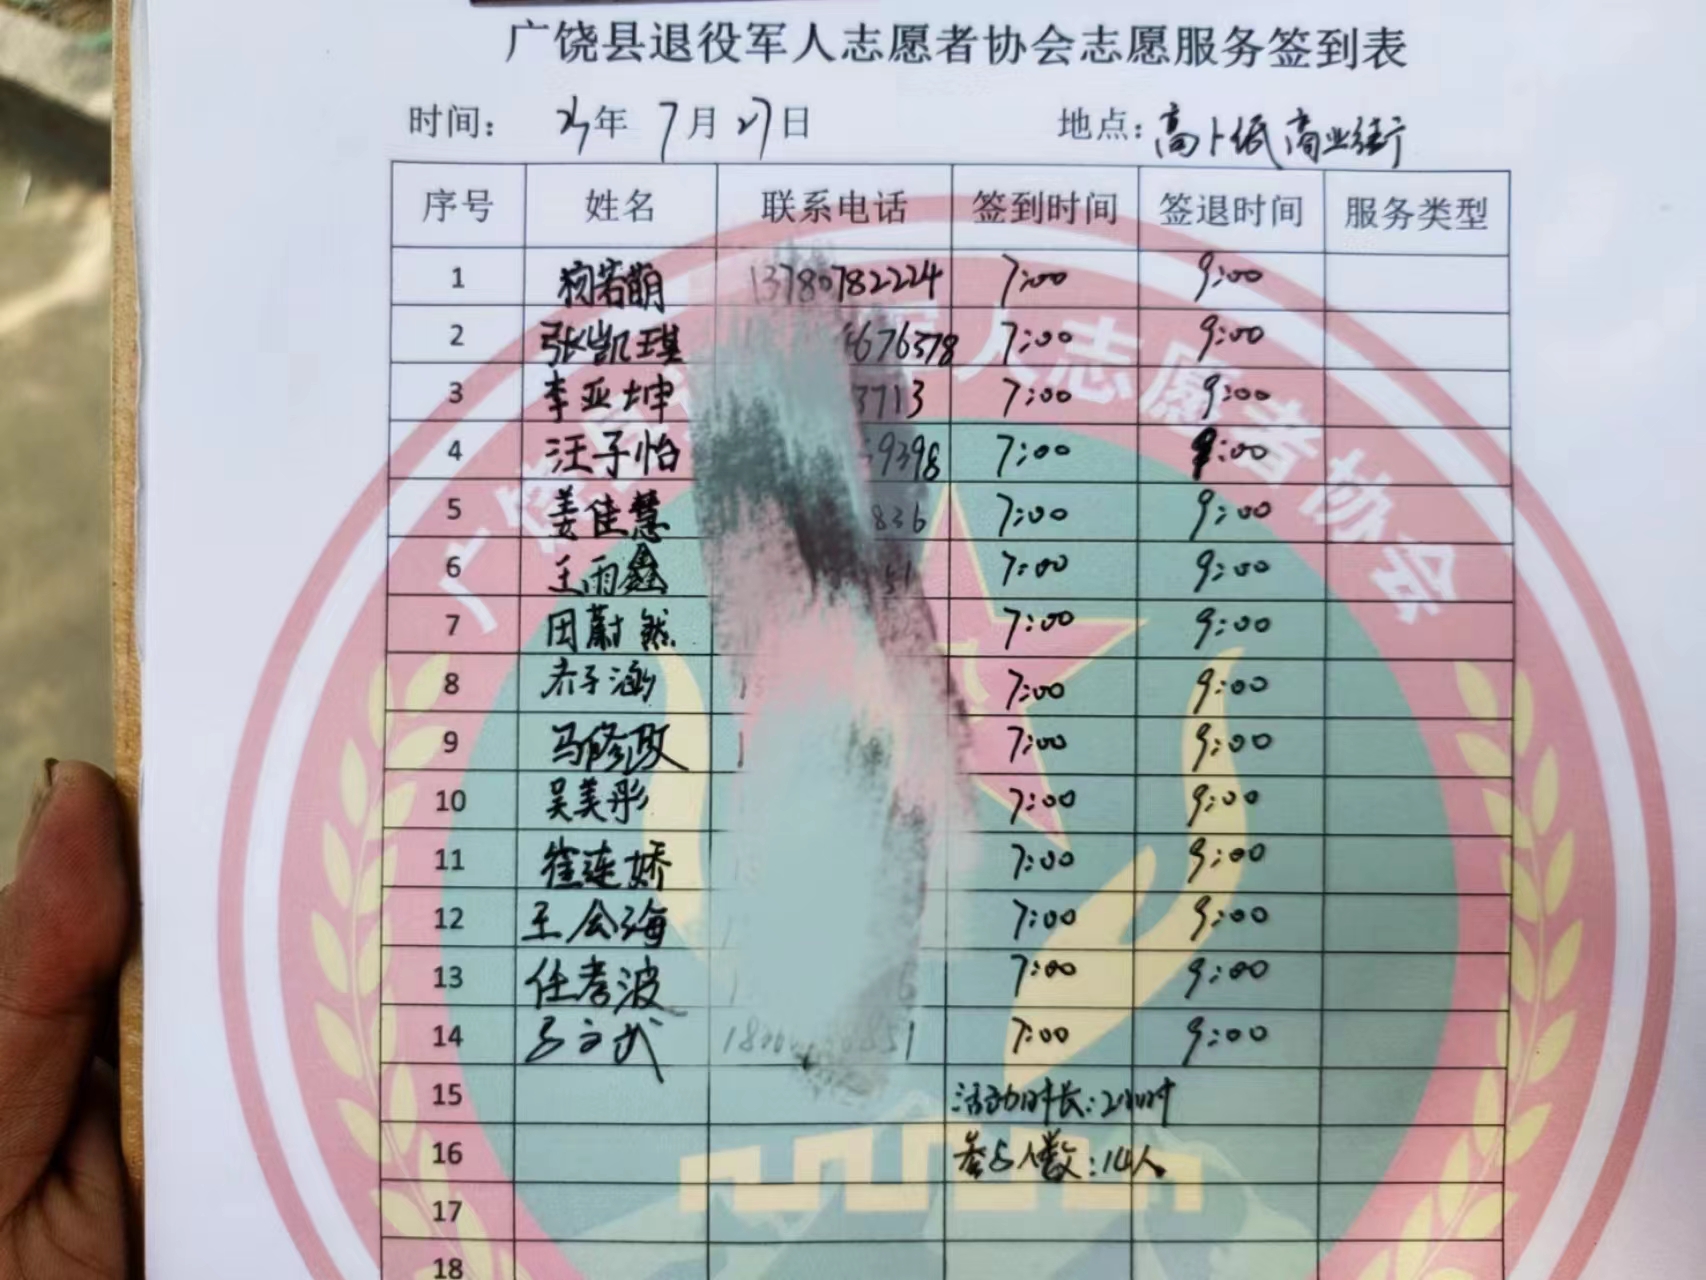 广饶县退役军人志愿者协会志愿服务签到表
时间: 23年 7月 27日 地点: 高卜纸商业街
序号 姓名 联系电话 签到时间 签退时间 服务类型
1 若萌 13780782224 7:00 9:00
2 张凯琪 676378 7:00 9:00
3 李亚坤 3713 7:00 9:00
4 汪子怡 9398 7:00 9:00
5 姜佳慧 836 7:00 9:00
6 王雨鑫 51 7:00 9:00
7 田蔚然 7:00 9:00
8 乔子涵 7:00 9:00
9 马修政 7:00 9:00
10 吴美彤 7:00 9:00
11 崔连娇 7:00 9:00
12 王会海 7:00 9:00
13 任孝波 7:00 9:00
14 7:00 9:00
15 活动时长:2小时
16 参与人数:14人
17
18
广饶县 军人志愿者协会